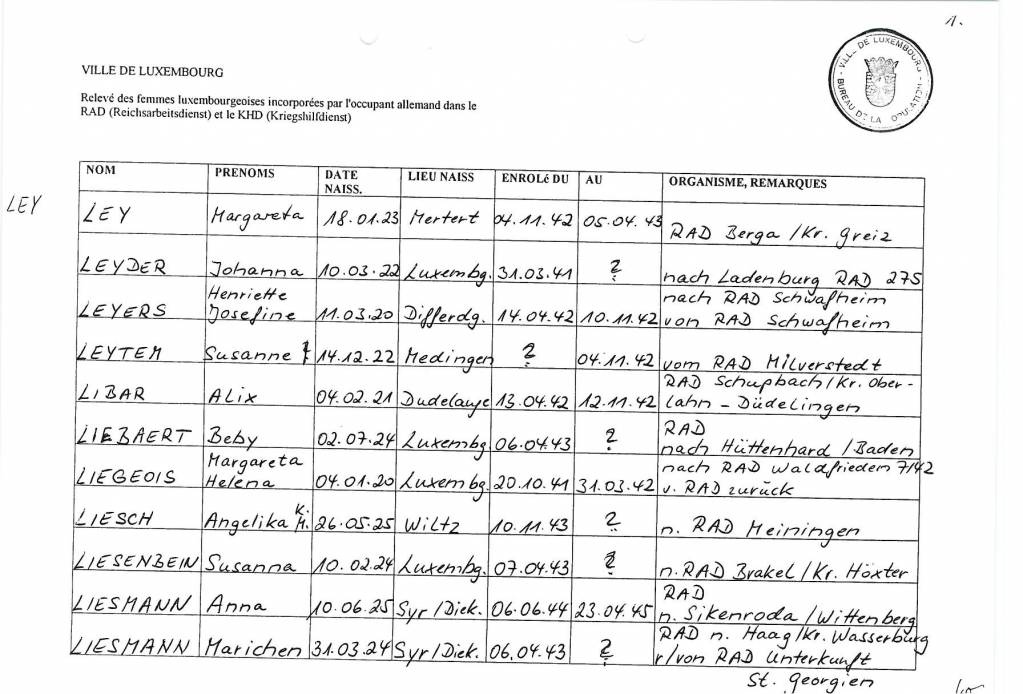 1.
VILLE DE LUXEMBOURG
BUREAU DE LA POPULATION
VILLE DE LUXEMBOURG
Relevé des femmes luxembourgeoises incorporées par l'occupant allemand dans le
RAD (Reichsarbeitsdienst) et le KHD (Kriegshilfdienst)
NOM PRENOMS DATE NAISS. LIEU NAISS ENROLé DU AU ORGANISME, REMARQUES
LEY
LEY Margareta 18.01.23 Mertert 04.11.42 05.04.43 RAD Berga /Kr. Greiz
LEYDER Johanna 10.03.22 Luxembg. 31.03.41 ? nach Ladenburg RAD 275
LEYERS Henriette Josefine 11.03.20 Differdg. 14.04.42 10.11.42 nach RAD Schwafheim von RAD Schwafheim
LEYTEM Susanne 14.12.22 Medingen ? 04.11.42 vom RAD Milverstedt
LIBAR Alix 04.02.21 Dudelange 13.04.42 12.11.42 RAD Schupbach/Kr. Ober-lahn - Düdelingen
LIEBAERT Beby 02.07.24 Luxembg 06.04.43 ? RAD nach Hüttenhard /Baden
LIEGEOIS Margareta Helena 04.01.20 Luxembg. 20.10.41 31.03.42 nach RAD Waldfriedem 7/42 v. RAD zurück
LIESCH Angelika K. M. 26.05.25 Wiltz 10.11.43 ? n. RAD Meiningen
LIESENBEIN Susanna 10.02.24 Luxembg. 07.04.43 ? n. RAD Brakel /Kr. Höxter
LIESMANN Anna 10.06.25 Syr/Diek. 06.06.44 23.04.45 RAD n. Sikenroda /Wittenberg
LIESMANN Marichen 31.03.24 Syr/Diek. 06.04.43 ? RAD n. Haag/Kr. Wasserburg r/von RAD Unterkunft
St. Georgien